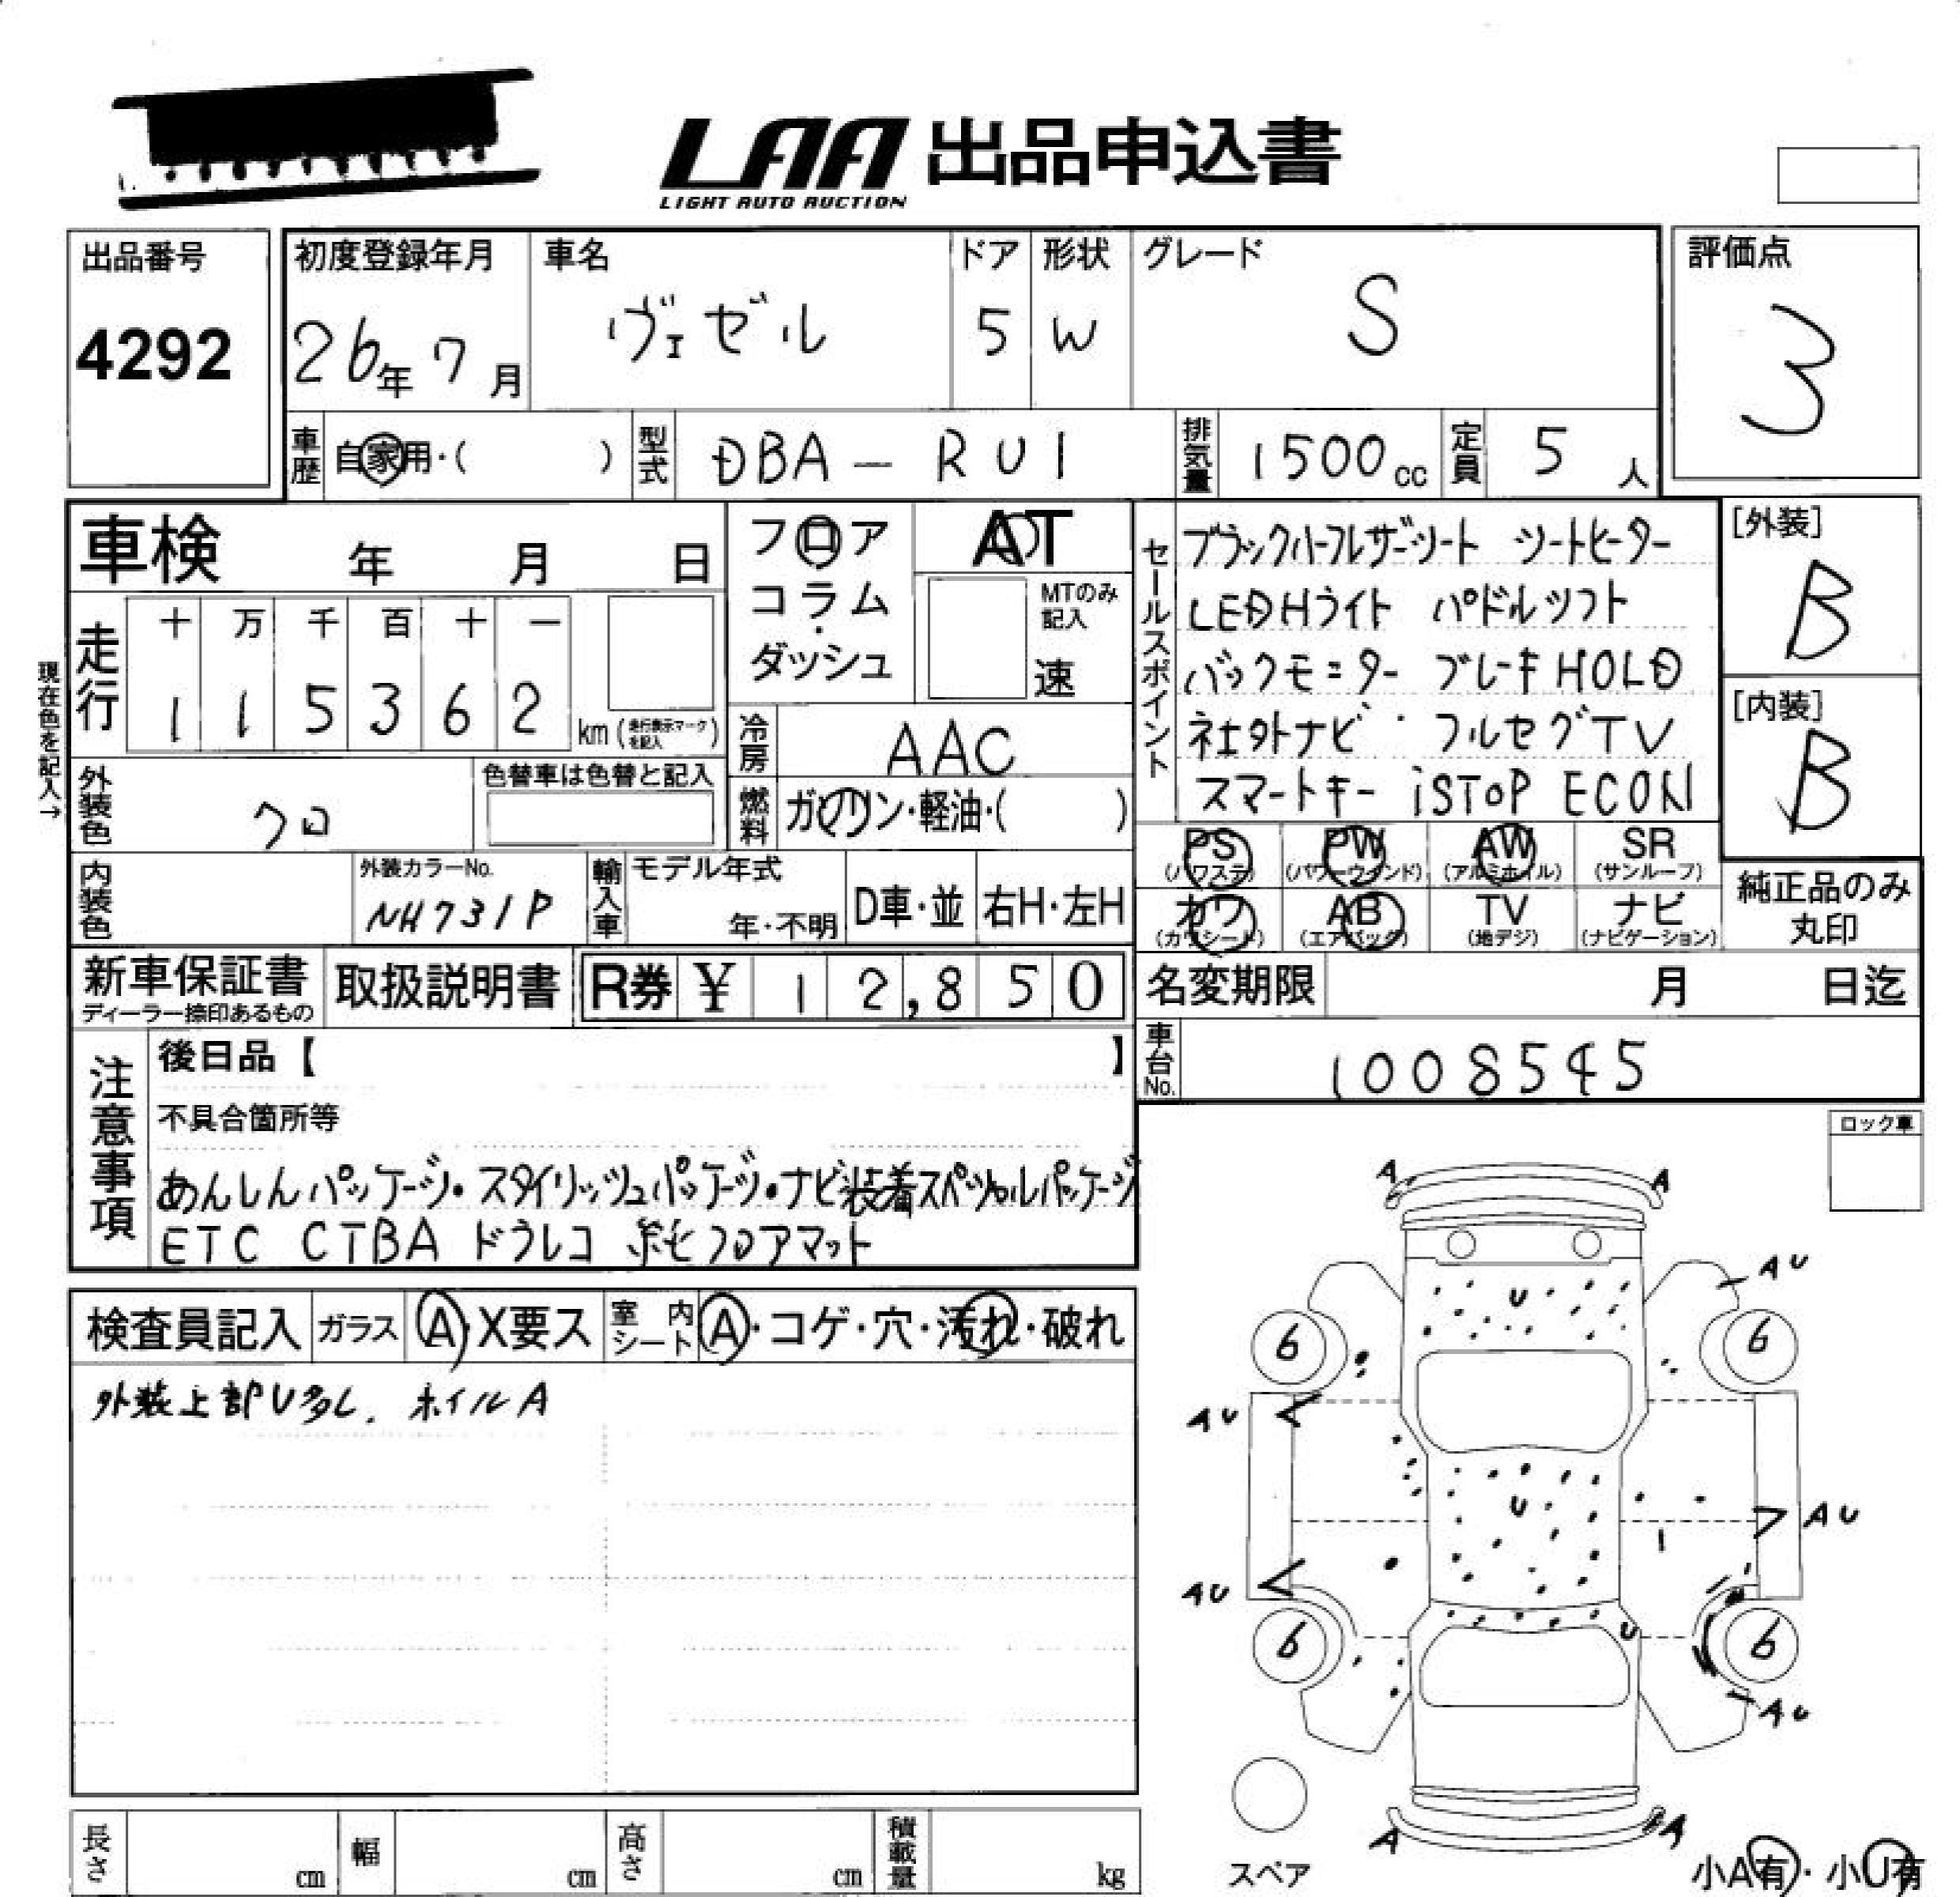 LAA 出品申込書
LIGHT AUTO AUCTION
出品番号
4292
初度登録年月
26年 7月
車名
ヴェゼル
ドア
5
形状
W
グレード
S
評価点
3
車歴 自家用・( )
型式 DBA-RU1
排気量 1500cc
定員 5人
車検 年 月 日
現在色を記入→
走行 十 万 千 百 十 一
1 1 5 3 6 2 km (走行表示マークを記入)
フロア
コラム・
ダッシュ
AT
MTのみ記入
速
冷房 AAC
燃料 ガソリン・軽油・( )
外装色 クロ
色替車は色替と記入
内装色
外装カラーNo.
NH731P
輸入車 モデル年式
年・不明
D車・並
右H・左H
セールスポイント
ブラックハーフレザーシート シートヒーター
LEDHライト パドルシフト
バックモニター ブレーキHOLD
社外ナビ・フルセグTV
スマートキー iSTOP ECON
[外装]
B
[内装]
B
PS (パワステ)
PW (パワーウィンド)
AW (アルミホイル)
SR (サンルーフ)
カワ (カワシート)
AB (エアバック)
TV (地デジ)
ナビ (ナビゲーション)
純正品のみ丸印
新車保証書
ディーラー捺印あるもの
取扱説明書
R券 ¥ 12,850
名変期限 月 日迄
車台No. 1008545
注意事項
後日品【 】
不具合箇所等
あんしんパッケージ・スタイリッシュパッケージ・ナビ装着スペシャルパッケージ
ETC CTBA ドラレコ 純正フロアマット
ロック車
検査員記入
ガラス A・X要ス
室内シート A・コゲ・穴・汚れ・破れ
外装上部U多し、ホイルA
A A
U
AU
6 6
AU
U
AU
AU
U
6 6
AU
A A
スペア
小A有・小U有
長さ cm
幅 cm
高さ cm
積載量 kg